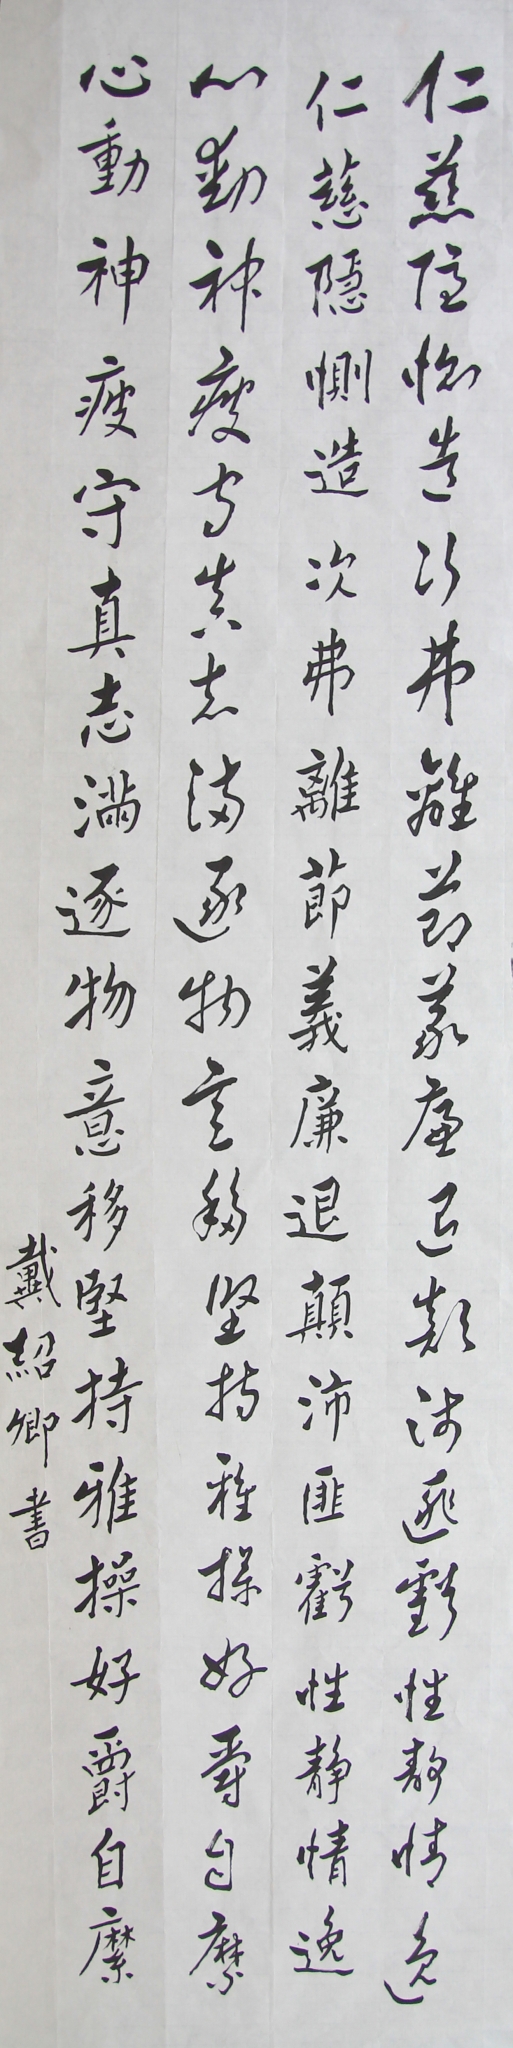 仁慈隱惻造次弗離節義廉退顛沛匪虧性靜情逸
仁慈隱惻造次弗離節義廉退顛沛匪虧性靜情逸
心動神疲守真志滿逐物意移堅持雅操好爵自縻
心動神疲守真志滿逐物意移堅持雅操好爵自縻
戴紹卿書